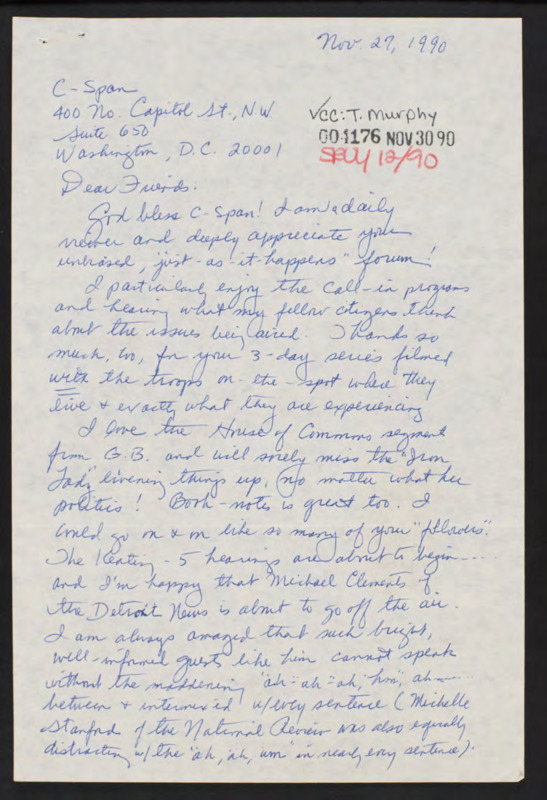 Nov. 27, 1990
C-Span
400 No. Capitol St., NW
Suite 650
Washington, D.C. 20001
√cc: T. Murphy
004176 NOV 30 90
12/90
Dear Friends:
God bless C-Span! I am a daily
viewer and deeply appreciate your
unbiased, "just-as-it-happens" forum!
I particularly enjoy the call-in programs
and hearing what my fellow citizens think
about the issues being aired. Thanks so
much, too, for your 3-day series filmed
with the troops on-the-spot where they
live & exactly what they are experiencing
I love the House of Commons segment
from G.B. and will sorely miss the "Iron
Lady" livening things up, no matter what her
politics! Book-notes is great too. I
could go on & on like so many of your "followers".
The Keating-5 hearings are about to begin....
and I'm happy that Michael Clements of
the Detroit News is about to go off the air.
I am always amazed that such bright,
well-informed guests like him cannot speak
without the maddening "ah-ah-ah, hm, ah—
between & intermixed w/every sentence (Michelle
Stanford of the National Review was also equally
distracting w/the "ah, ah, um" in nearly every sentence).